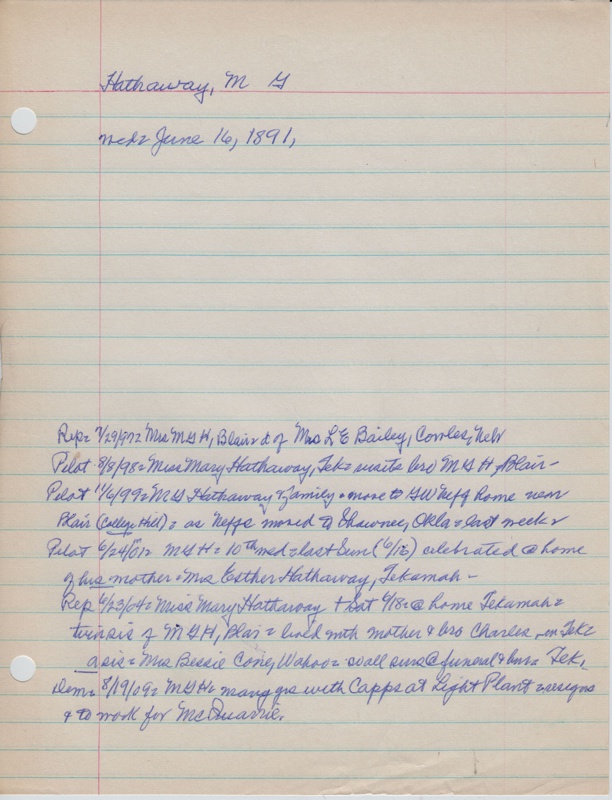 Hathaway, M G
wed= June 16, 1891,
Rep= 7/29/97= Mrs M G H, Blair= d of Mrs L E Bailey, Cowles, Nebr
Pilot 8/8/98= Miss Mary Hathaway, Tek= visits bro M G H, Blair-
Pilot 11/6/99= M G Hathaway & family = move to GW Neff home near
Blair (College Hill) = as Neffs moved to Shawnee, Okla = last week=
Pilot 6/24/01= M G H = 10th wed = last Sun (6/16) celebrated @ home
of his mother = Mrs Esther Hathaway, Tekamah -
Rep 6/23/04= Miss Mary Hathaway + Sat 6/18 = @ home Tekamah =
sis of M G H, Blair = lived with mother & bro Charles in Tek=
a sis = Mrs Bessie Cone, Wahoo = all surv @ funeral & bur= Tek,
Dem= 8/19/09= M G H= many yrs with Capps at Light Plant = resigns
& to work for McQuarrie.